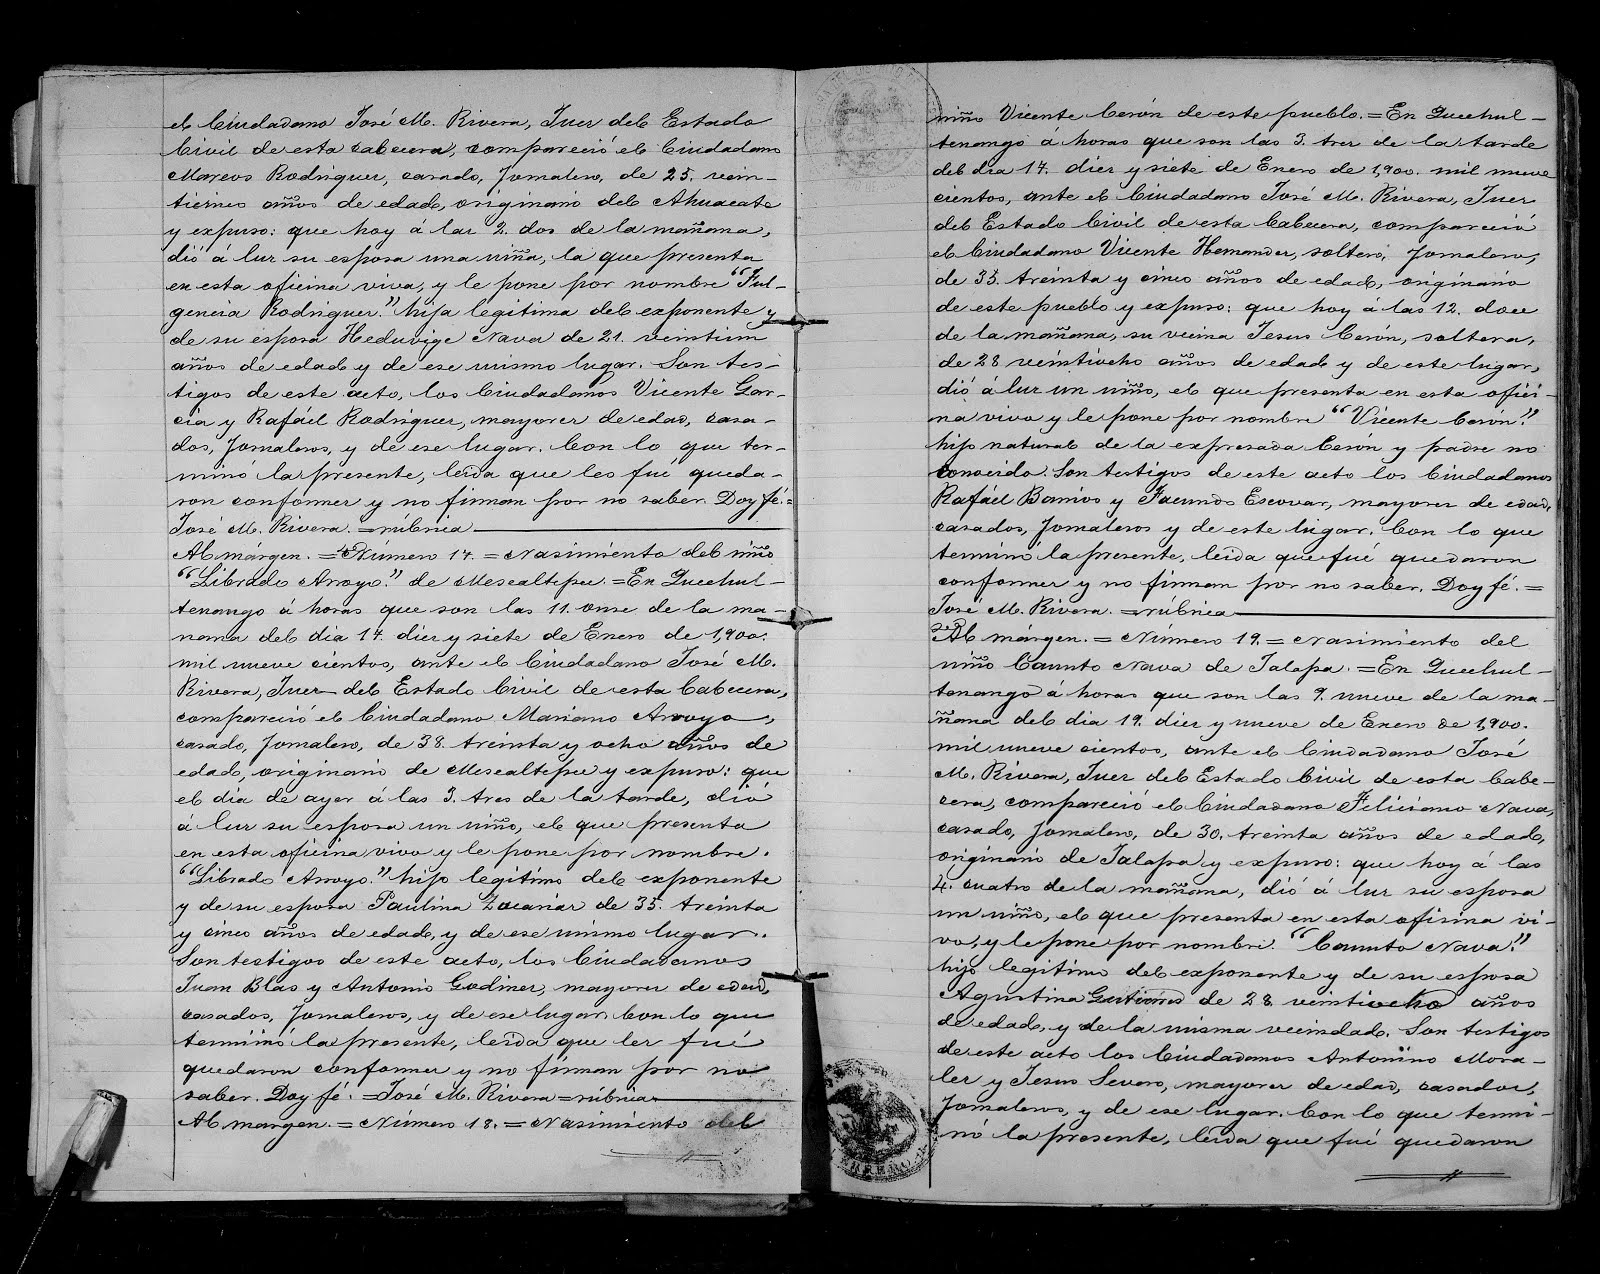 el Ciudadano José M. Rivera, Juez del Estado
Civil de esta cabecera, compareció el Ciudadano
Marcos Rodriguez, casado, Jornalero, de 25. vein-
ticinco años de edad, originario del Ahuacate
y expuso: que hoy á las 2. dos de la mañana,
dió á luz su esposa una niña, la que presenta
en esta oficina viva, y le pone por nombre "Ful-
gencia Rodriguez." hija legitima del exponente y
de su esposa Heduvige Nava de 21. veintiun
años de edad y de ese mismo lugar. Son tes-
tigos de este acto, los Ciudadanos Vicente Gar-
cia y Rafáel Rodriguez, mayores de edad, casa-
dos, Jornaleros, y de ese lugar. Con lo que ter-
minó la presente, leida que les fué queda-
ron conformes y no firman por no saber. Doy fé.=
José M. Rivera.=rúbrica
Al márgen.=Número 17.=Nasimiento del niño
"Librado Arroyo." de Mescaltepec.=En Quechul-
tenango á horas que son las 11. onse de la ma-
nana del dia 17. diez y siete de Enero de 1,900.
mil nueve cientos, ante el Ciudadano José M.
Rivera, Juez del Estado Civil de esta Cabecera,
compareció el Ciudadano Mariano Arroyo,
casado, Jornalero, de 38. treinta y ocho años de
edad, originario de Mescaltepec y expuso: que
el dia de ayer á las 3. tres de la tarde, dió
á luz su esposa un niño, el que presenta
en esta oficina vivo y le pone por nombre.
"Librado Arroyo." hijo legitimo del exponente
y de su esposa Paulina Zacarias de 35. treinta
y cinco años de edad, y de ese mismo lugar.
Son testigos de este acto, los Ciudadanos
Juan Blas y Antonio Godinez, mayores de edad,
casados, Jornaleros, y de ese lugar. Con lo que
terminó la presente, leida que les fué
quedaron conformes y no firman por no
saber. Doy fé.=José M. Rivera=rúbrica
Al margen.=Número 18.=Nasimiento del
niño Vicente Cerón de este pueblo.=En Quechul-
tenango á horas que son las 3. tres de la tarde
del dia 17. diez y siete de Enero de 1,900. mil nueve
cientos, ante el Ciudadano José M. Rivera, Juez
del Estado Civil de esta Cabecera, compareció
el Ciudadano Vicente Hernandez, soltero, Jornalero,
de 35. treinta y cinco años de edad, originario
de este pueblo y expuso: que hoy á las 12. doce
de la mañana, su vecina Jesus Cerón, soltera,
de 28 veintiocho años de edad y de este lugar,
dió á luz un niño, el que presenta en esta ofici-
na vivo y le pone por nombre "Vicente Cerón."
hijo natural de la expresada Cerón y padre no
conocido. Son testigos de este acto los Ciudadanos
Rafáel Barrios y Facundo Escovar, mayores de edad,
casados, Jornaleros y de este lugar. Con lo que
termino la presente, leida que fué quedaron
conformes y no firman por no saber. Doy fé.=
José M. Rivera.=rúbrica
Al márgen.=Número 19.=Nasimiento del
niño Canuto Nava de Jalapa.=En Quechul-
tenango á horas que son las 9. nueve de la ma-
ñana del dia 19. diez y nueve de Enero de 1,900.
mil nueve cientos, ante el Ciudadano José
M. Rivera, Juez del Estado Civil de esta Cabe-
cera, compareció el Ciudadano Feliciano Nava,
casado, Jornalero, de 30. treinta años de edad,
originario de Jalapa y expuso: que hoy á las
4. cuatro de la mañana, dió á luz su esposa
un niño, el que presenta en esta oficina vi-
vo, y le pone por nombre. "Canuto Nava."
hijo legitimo del exponente y de su esposa
Agustina Gutierres de 28 veintiocho años
de edad, y de la misma vecindad. Son testigos
de este acto los Ciudadanos Antonino Mora-
les y Jesus Severo, mayores de edad, casados,
Jornaleros, y de ese lugar. Con lo que termi-
nó la presente, leida que fué quedaron